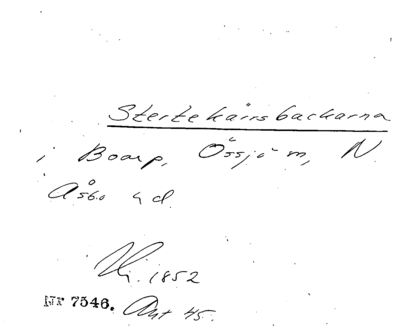 Stertekärrsbackarna
i Boarp, Össjö sn, N.
Åsbo hd.
1852
Nr 7546. Ant 45.